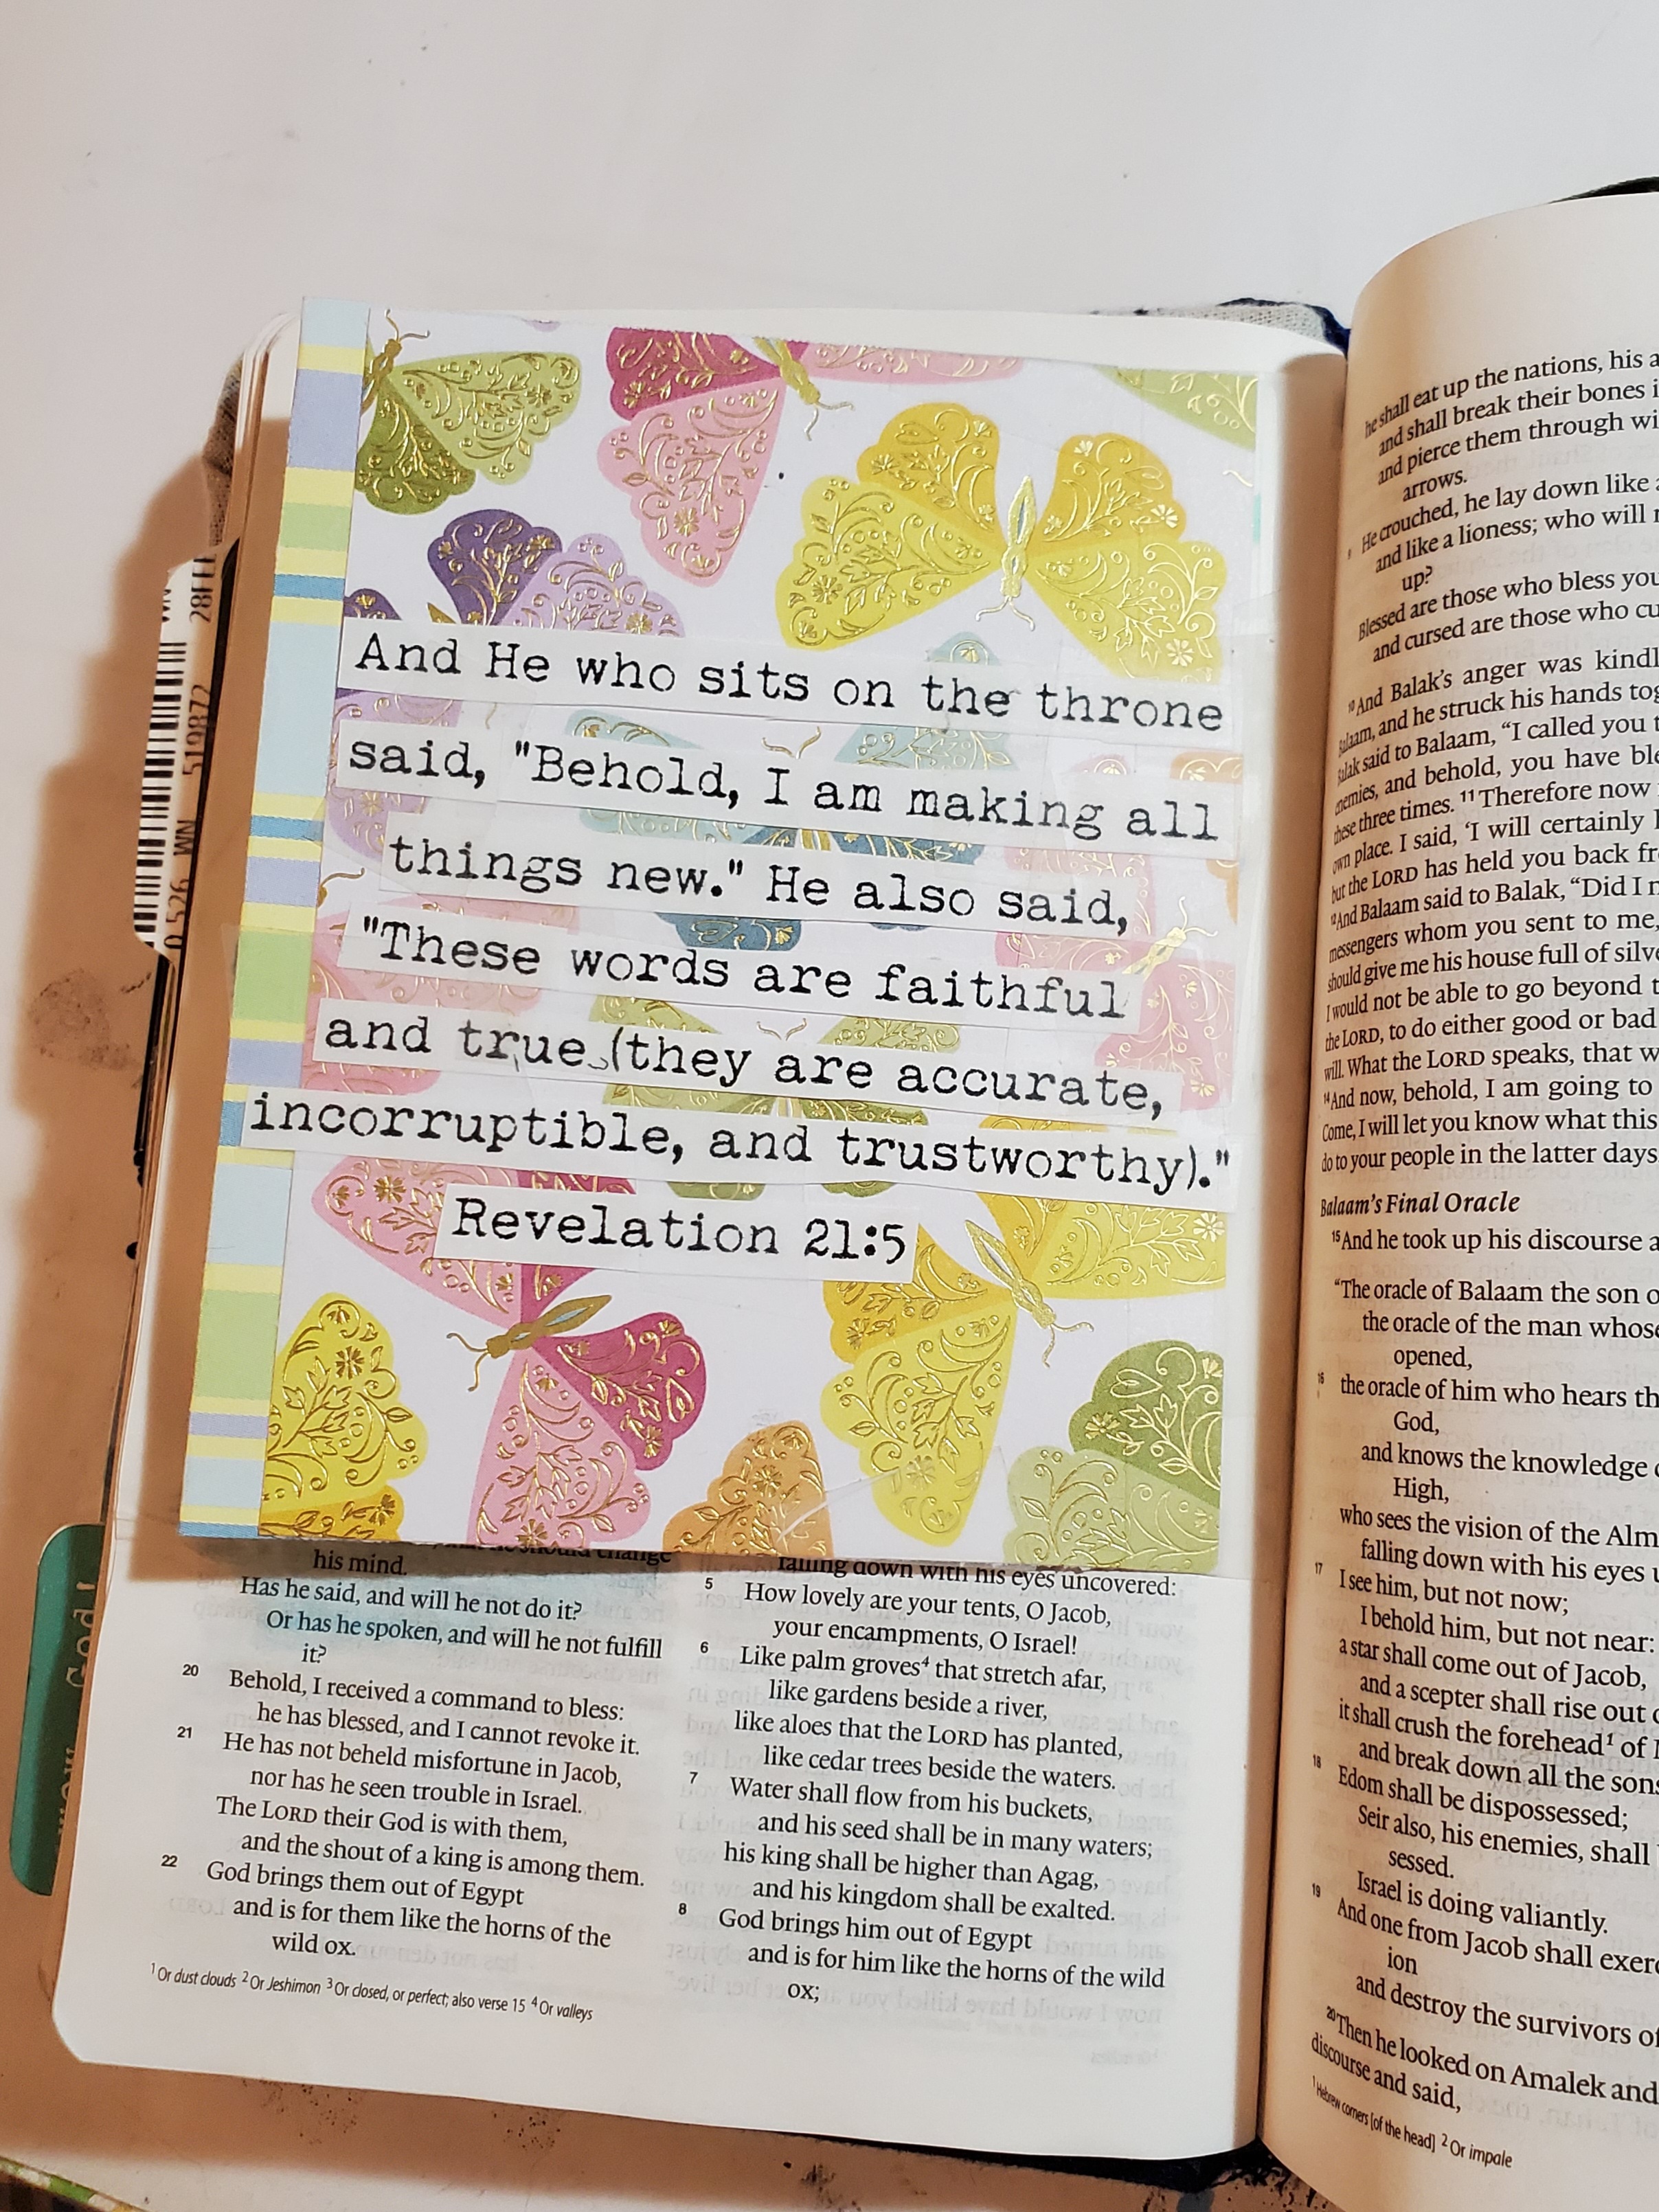 And He who sits on the throne
said, "Behold, I am making all
things new." He also said,
"These words are faithful
and true (they are accurate,
incorruptible, and trustworthy)."
Revelation 21:5
should change
his mind.
Has he said, and will he not do it?
Or has he spoken, and will he not fulfill
it?
20 Behold, I received a command to bless:
he has blessed, and I cannot revoke it.
21 He has not beheld misfortune in Jacob,
nor has he seen trouble in Israel.
The LORD their God is with them,
and the shout of a king is among them.
22 God brings them out of Egypt
and is for them like the horns of the
wild ox.
falling down with his eyes uncovered:
5 How lovely are your tents, O Jacob,
your encampments, O Israel!
6 Like palm groves4 that stretch afar,
like gardens beside a river,
like aloes that the LORD has planted,
like cedar trees beside the waters.
7 Water shall flow from his buckets,
and his seed shall be in many waters;
his king shall be higher than Agag,
and his kingdom shall be exalted.
8 God brings him out of Egypt
and is for him like the horns of the wild
ox;
1 Or dust clouds 2 Or Jeshimon 3 Or closed, or perfect; also verse 15 4 Or valleys
he shall eat up the nations, his
and shall break their bones
and pierce them through
arrows.
9 He crouched, he lay down like
and like a lioness; who will
up?
Blessed are those who bless
and cursed are those who
10 And Balak's anger was
Balaam, and he struck his hands
Balak said to Balaam, "I called you
enemies, and behold, you have
these three times. 11 Therefore now
own place. I said, 'I will certainly
but the LORD has held you back
12 And Balaam said to Balak, "Did I
messengers whom you sent to me,
should give me his house full of
I would not be able to go beyond
the LORD, to do either good or bad
will. What the LORD speaks, that
14 And now, behold, I am going to
Come, I will let you know what this
do to your people in the latter days
Balaam's Final Oracle
15 And he took up his discourse
"The oracle of Balaam the son
the oracle of the man
opened,
16 the oracle of him who hears
God,
and knows the knowledge
High,
who sees the vision of the
falling down with his eyes
17 I see him, but not now;
I behold him, but not near:
a star shall come out of Jacob,
and a scepter shall rise out
it shall crush the forehead1 of
and break down all the
18 Edom shall be dispossessed;
Seir also, his enemies, shall
sessed.
Israel is doing valiantly.
19 And one from Jacob shall
ion
and destroy the survivors
20 Then he looked on Amalek and
discourse and said,
1 Hebrew corners [of the head] 2 Or impale
0 526 WN 519872 28
God!